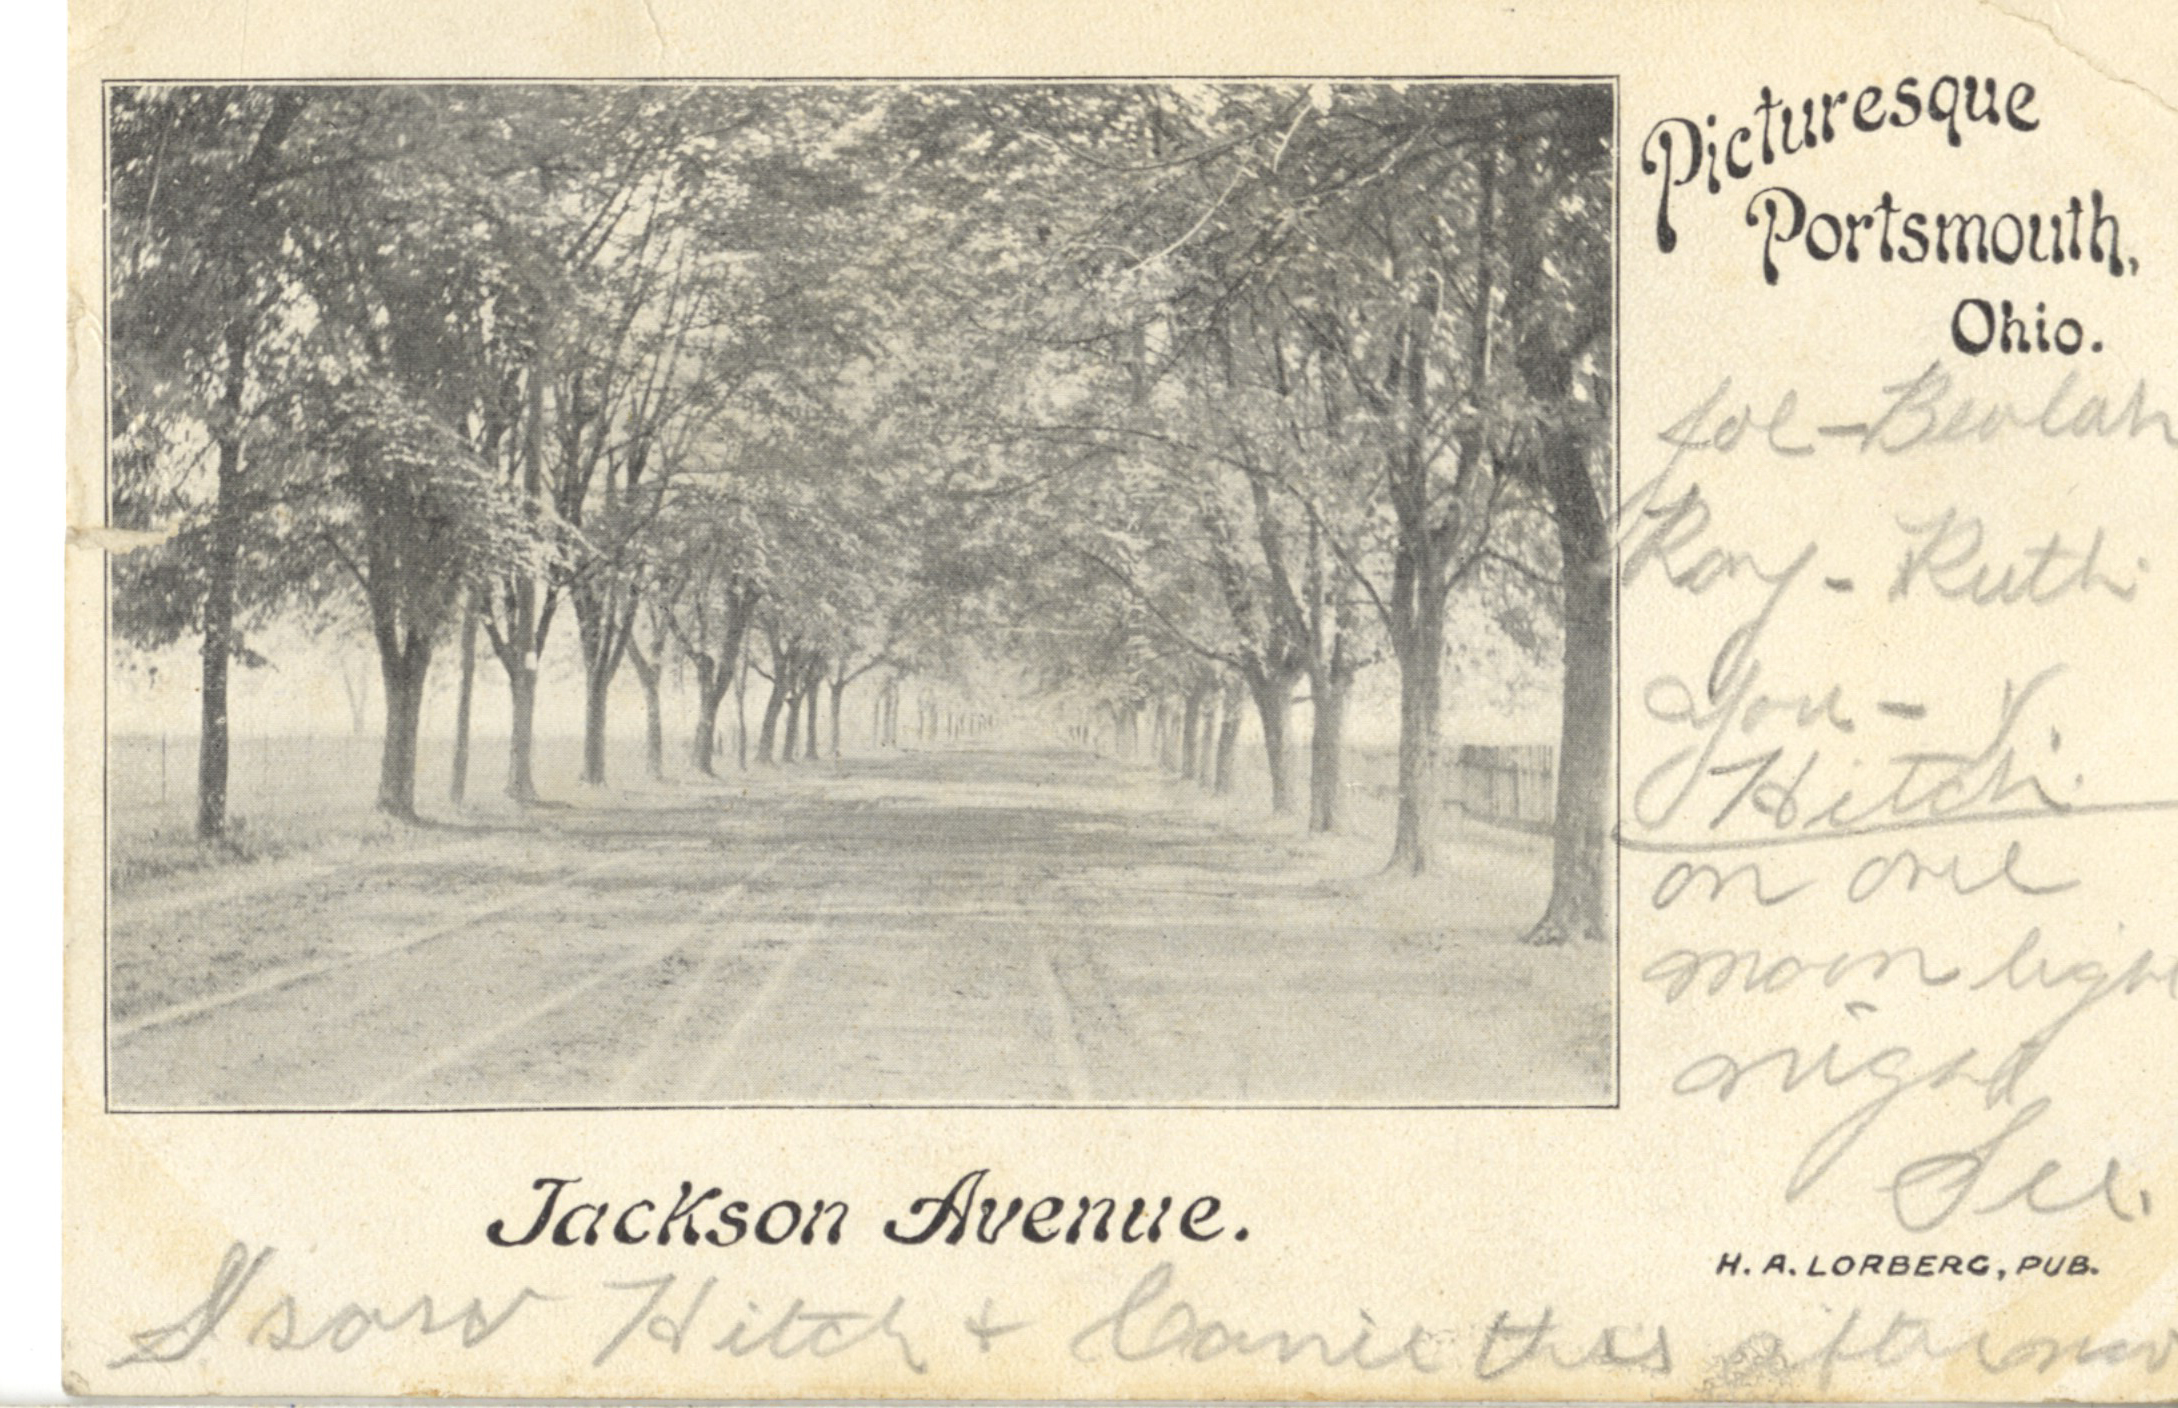 Picturesque
Portsmouth,
Ohio.
Joe - Beulah
Roy - Ruth
You -
Hitch.
on one
moon light
night
See.
Jackson Avenue.
H. A. LORBERG, PUB.
I saw Hitch + this